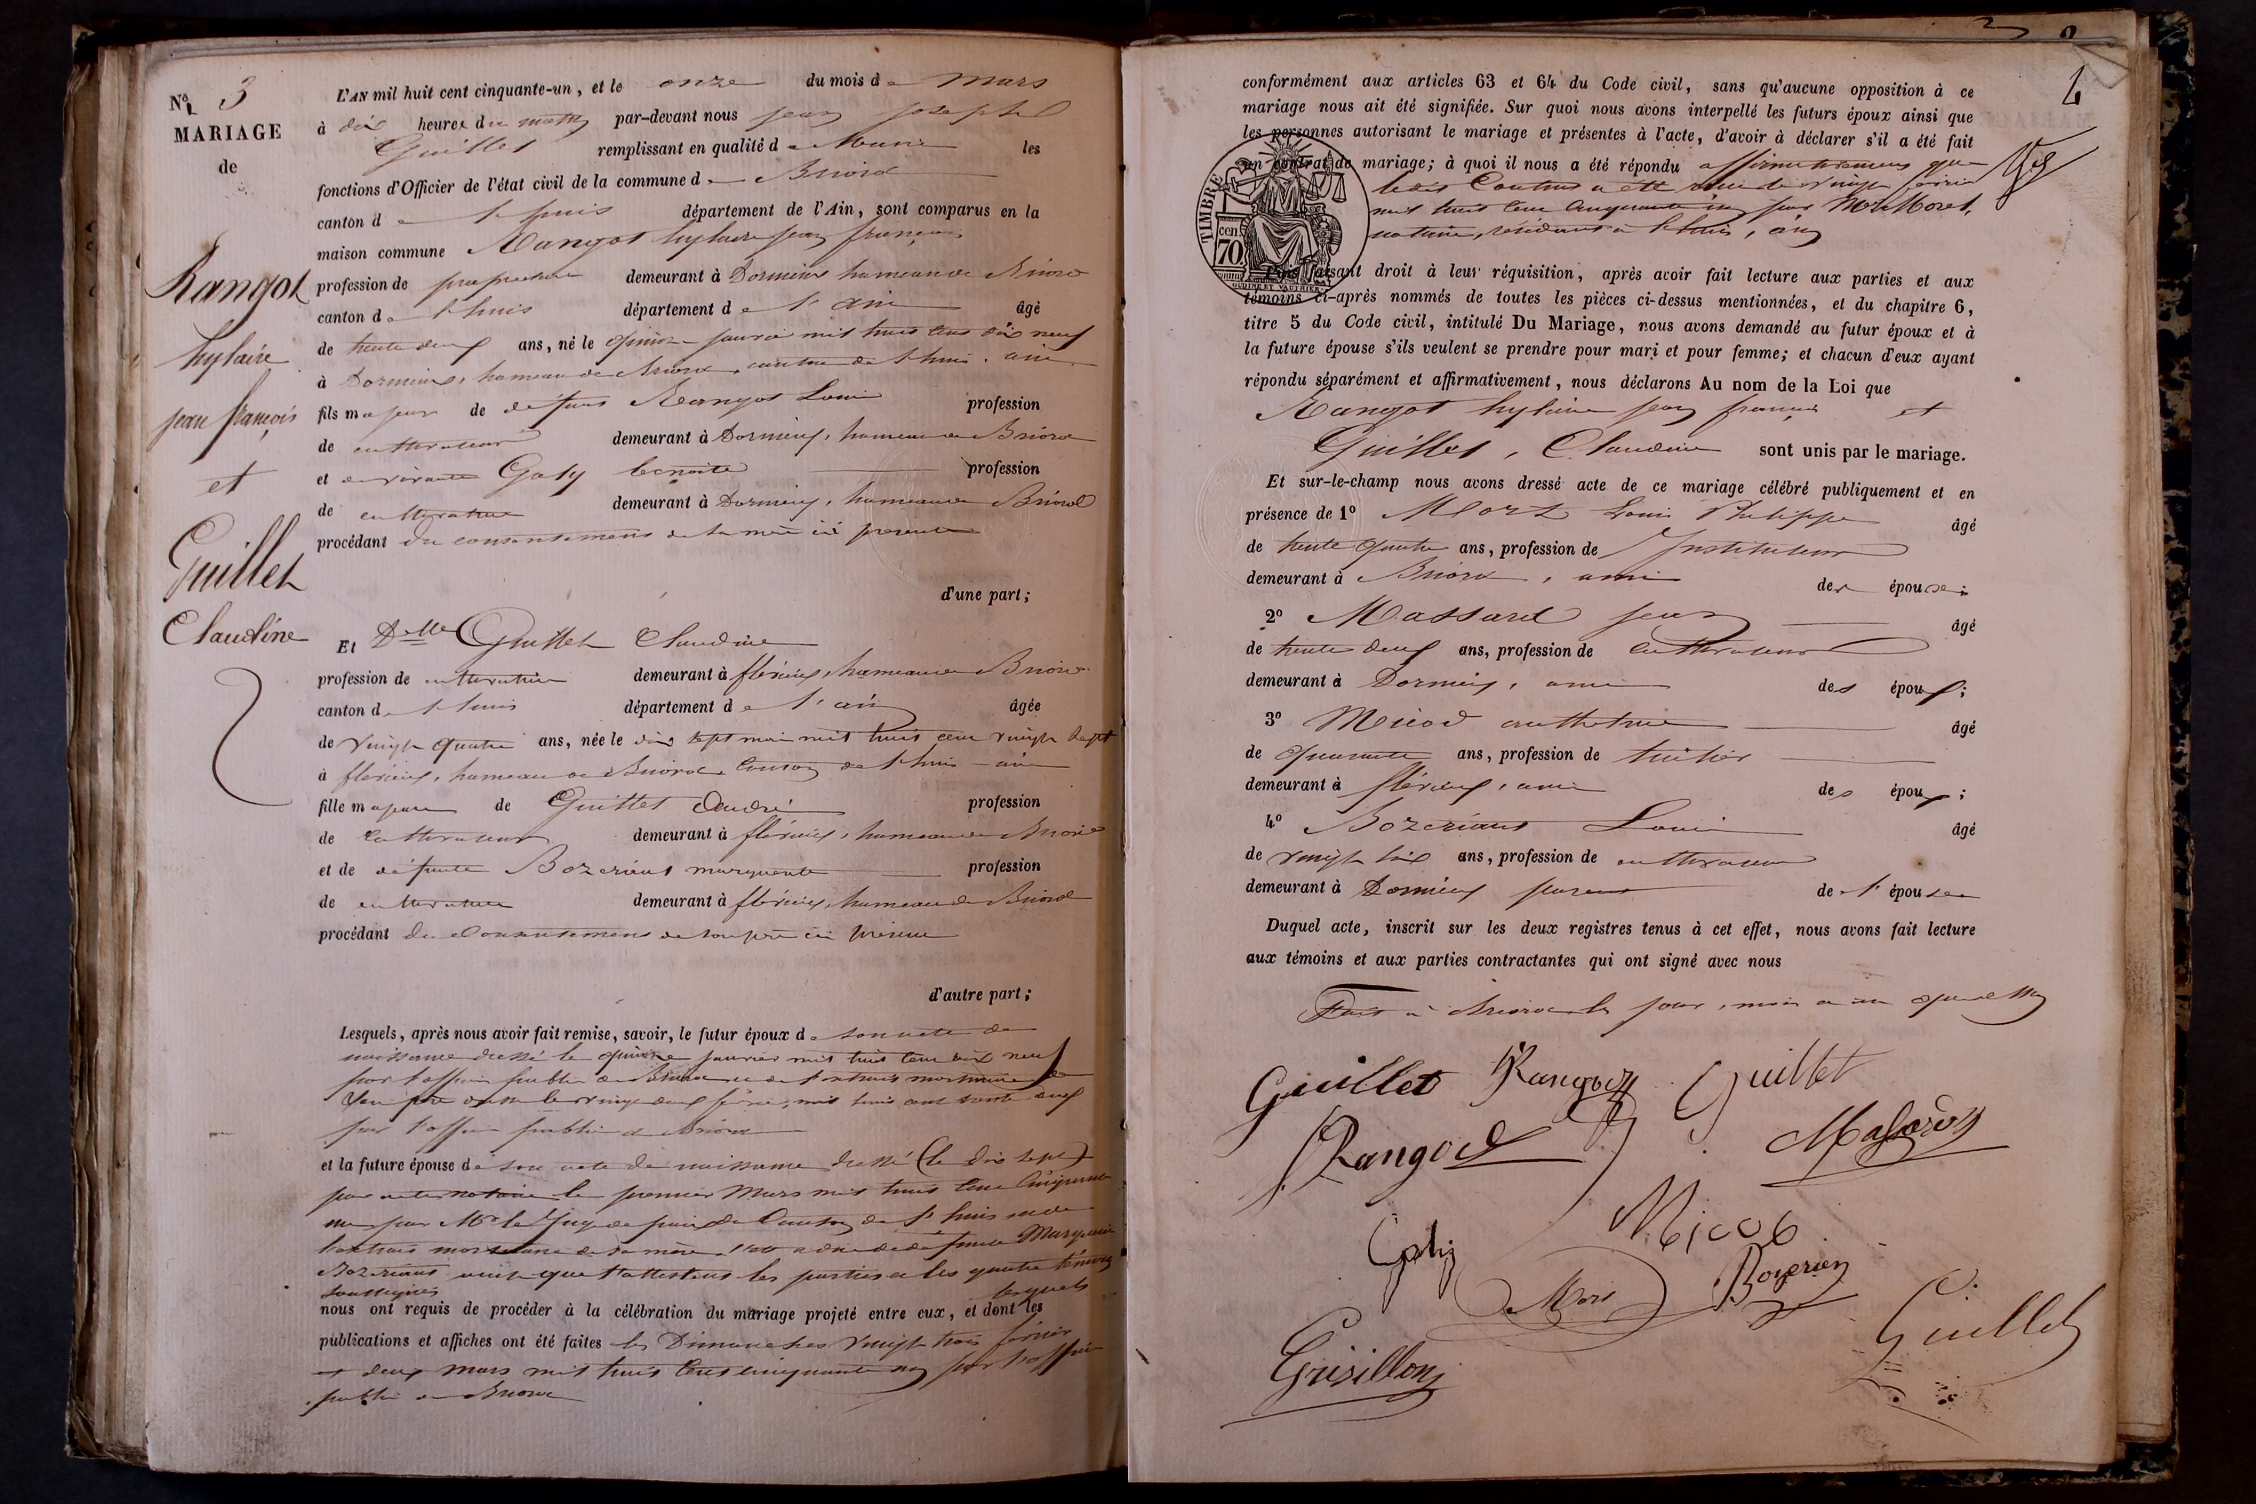 No 3
MARIAGE
de
Rangot
hylaire
jean françois
et
Guillet
Claudine
L'AN mil huit cent cinquante-un, et le onze du mois de mars
à dix heures du matin par-devant nous jean joseph
Guillet remplissant en qualité de Maire les
fonctions d'Officier de l'état civil de la commune de Briord
canton de Lhuis département de l'Ain, sont comparus en la
maison commune Rangot hylaire jean françois
profession de propriétaire demeurant à Dornieux hameau de Briord
canton de Lhuis département de l'ain âgé
de trente deux ans, né le quinze janvier mil huit cent dix neuf
à Dornieux, hameau de Briord, canton de Lhuis, ain
fils majeur de défunt Rangot Louis profession
de cultivateur demeurant à Dornieux, hameau de Briord
et de vivante Goty benoite profession
de cultivatrice demeurant à Dornieux, hameau de Briord
procédant du consentement de sa mère ici présente
d'une part;
Et Delle Guillet Claudine
profession de cultivatrice demeurant à flérieux, hameau de Briord
canton de Lhuis département de l'ain âgée
de vingt quatre ans, née le dix sept mai mil huit cent vingt sept
à flérieux, hameau de Briord, Canton de Lhuis ain
fille majeure de Guillet André profession
de cultivateur demeurant à flérieux, hameau de Briord
et de défunte Bozeriant marguerite profession
de cultivatrice demeurant à flérieux, hameau de Briord
procédant du Consentement de son père ici présent
d'autre part;
Lesquels, après nous avoir fait remise, savoir, le futur époux de son acte de
naissance dressé le quinze janvier mil huit cent dix neuf
par l'officier public de Briord et de l'extrait mortuaire de
son père dressé le vingt deux février mil huit cent trente deux
par l'officier public de Briord
et la future épouse de son acte de naissance dressé (le dix sept)
par acte notoire le premier Mars mil huit Cent Cinquante
un par Mr le Juge de paix du Canton de Lhuis et de
l'extrait mortuaire de sa mère défunte Marguerite
Bozeriant ainsi que l'attestent les parties et les quatre témoins
soussignés lesquels
nous ont requis de procéder à la célébration du mariage projeté entre eux, et dont les
publications et affiches ont été faites les Dimanches vingt trois février
et deux mars mil huit Cent cinquante un par l'officier
public de Briord
2
conformément aux articles 63 et 64 du Code civil, sans qu'aucune opposition à ce
mariage nous ait été signifiée. Sur quoi nous avons interpellé les futurs époux ainsi que
les personnes autorisant le mariage et présentes à l'acte, d'avoir à déclarer s'il a été fait
un contrat de mariage; à quoi il nous a été répondu affirmativement que
ledit Contrat a été reçu le vingt février
mil huit Cent Cinquante un par Mre Moret,
notaire, résidant à Lhuis, ain
TIMBRE
cen.
70
OUDINE ET VAUTHIER
Puis faisant droit à leur réquisition, après avoir fait lecture aux parties et aux
témoins ci-après nommés de toutes les pièces ci-dessus mentionnées, et du chapitre 6,
titre 5 du Code civil, intitulé Du Mariage, nous avons demandé au futur époux et à
la future épouse s'ils veulent se prendre pour mari et pour femme; et chacun d'eux ayant
répondu séparément et affirmativement, nous déclarons Au nom de la Loi que
Rangot hylaire jean françois et
Guillet, Claudine sont unis par le mariage.
Et sur-le-champ nous avons dressé acte de ce mariage célébré publiquement et en
présence de 1o Mort Louis Philippe âgé
de trente quatre ans, profession de Instituteur
demeurant à Briord, ami des époux;
2o Massard jean âgé
de trente deux ans, profession de cultivateur
demeurant à Dornieux, ami des époux;
3o Micod anthelme âgé
de quarante ans, profession de tuilier
demeurant à flérieux, ami des époux;
4o Bozeriant Louis âgé
de vingt six ans, profession de cultivateur
demeurant à Dornieux parent de l'épouse
Duquel acte, inscrit sur les deux registres tenus à cet effet, nous avons fait lecture
aux témoins et aux parties contractantes qui ont signé avec nous
Fait à Briord les jour, mois et an que dessus
Guillet Rangoz Guillet
Rangod
Micod
Mort Bozerian
Grisillon Guillet